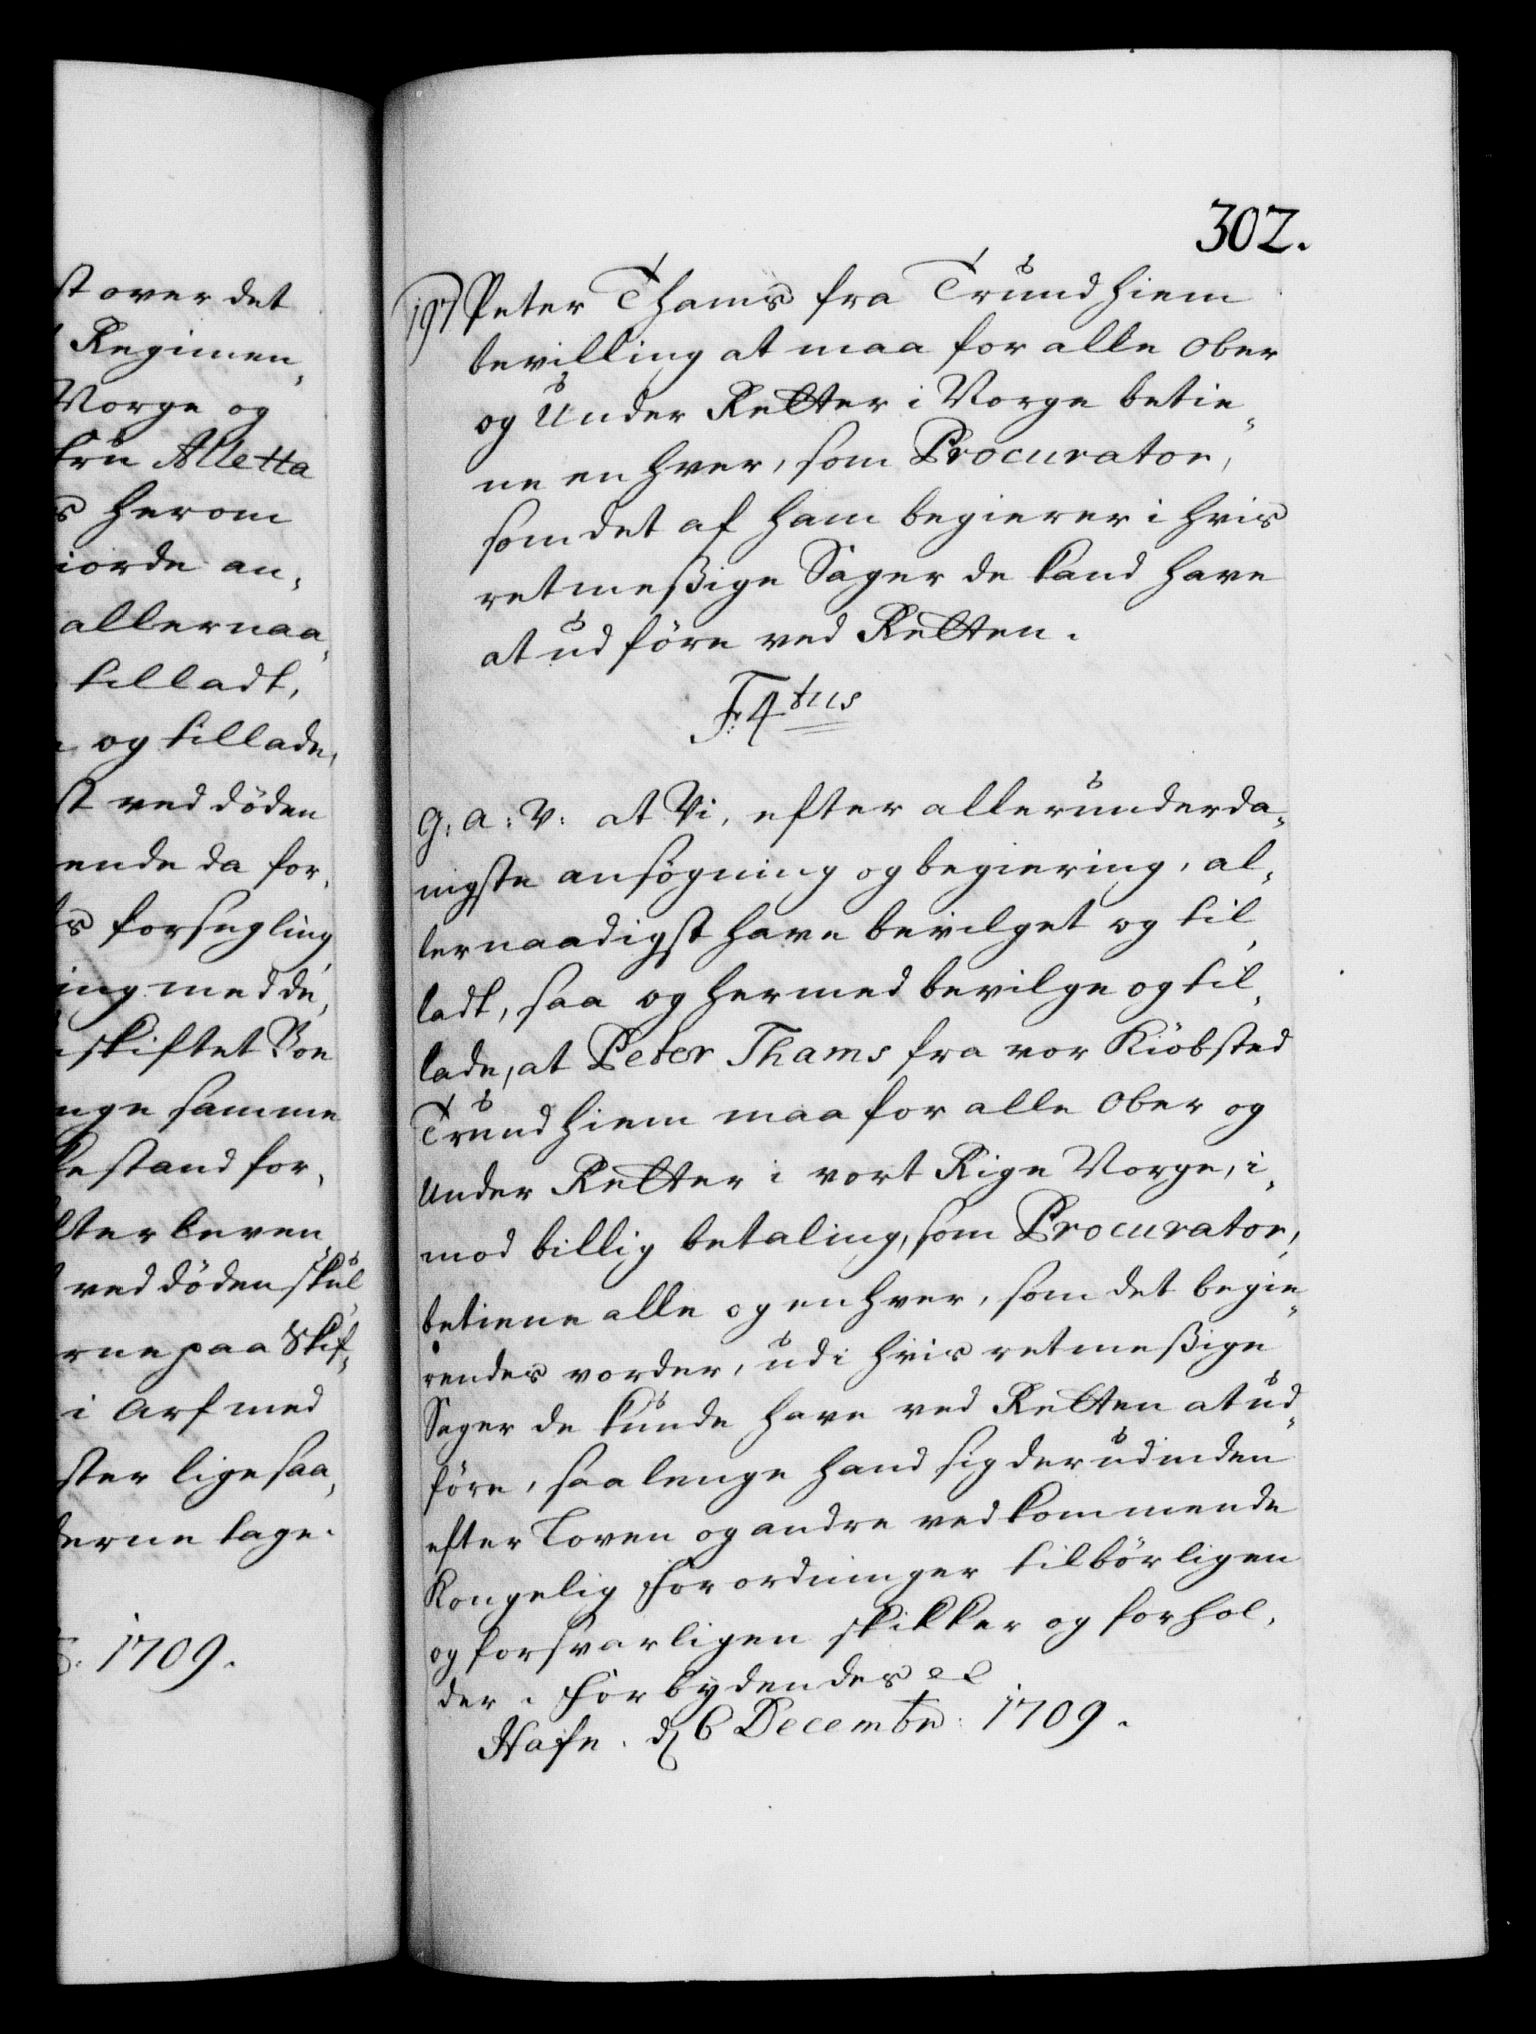 st over det
Regimen„
Norge og
fru Alletta
s herom
iorde an„
allernaa„
tilladt,
og tillade,
st ved döden
ende da for„
s forsegling
ing med de„
skiftet Boe
nge samme
bestand for„
fter leven„
ved döden skul
rne paa Skif„
i Arf med
ster lige saa„
derne tage.
1709.
302.
197 Peter Thams fra Trundhiem
bevilling at maa for alle Ober
og Under Retter i Norge betie„
ne en hver, som Procurator,
som det af ham begierer i hvis
retmeßige Sager de kand have
at udföre ved Retten.
F: 4tus
G: A: V: at Vi, efter allerunderda„
nigste ansögning og begiering, al„
lernaadigst have bevilget og til„
ladt, saa og hermed bevilge og til„
lade, at Peter Thams fra vor Kiöbsted
Trundhiem maa for alle Ober og
Under Retter i vort Rige Norge, i„
mod billig betaling, som Procurator,
betiene alle og enhver, som det begie„
rendes vorder, udi hvis retmeßige
Sager de kunde have ved Retten at ud„
före, saa lenge hand sig derudinden
efter Loven og andre vedkommende
Kongelig Forordninger tilbörligen
og forsvarligen skikker og forhol„
der. Forbydendes etc
Hafn. d 6 Decembr: 1709.